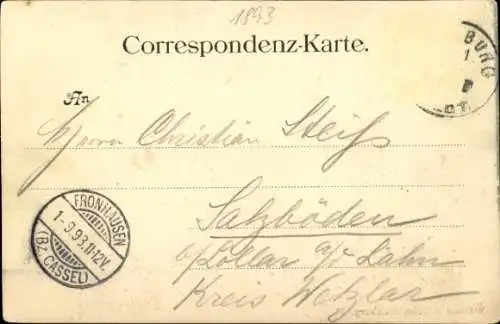 1893
Correspondenz-Karte.
BURG
1.
An
Herrn Christian Steiß
FRONHAUSEN
1-9.93.11-12V.
(Bz. CASSEL)
Salzböden
b/Lollar a/d Lahn
Kreis Wetzlar